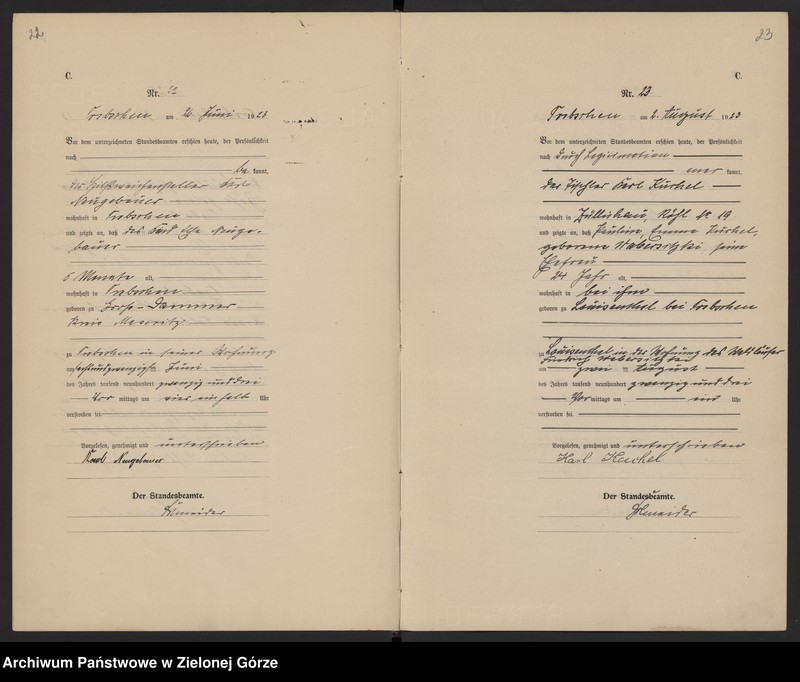 22
C.
Nr. 22
am 26. Juni 1923
Vor dem unterzeichneten Standesbeamten erschien heute, der Persönlichkeit
nach
be kannt,
der Karl
Neugebauer
wohnhaft in
und zeigte an, daß das Kind Neuge-
bauer
6 Monate alt,
wohnhaft in
geboren zu Groß-Dammer
Kreis Meseritz
zu in seiner Wohnung
am sechsundzwanzigsten Juni
des Jahres tausend neunhundert zwanzig und drei
Vor mittags um vier einhalb Uhr
verstorben sei.
Vorgelesen, genehmigt und unterschrieben
Karl Neugebauer
Der Standesbeamte.
Schneider
23
C.
Nr. 23
am 2. August 1923
Vor dem unterzeichneten Standesbeamten erschien heute, der Persönlichkeit
nach durch Legitimation
kannt,
der Tischler Karl
wohnhaft in Züllichau, № 19
und zeigte an, daß Pauline, Emma
geborene seine
Ehefrau
24 Jahr alt,
wohnhaft in bei ihm
geboren zu Louisenthal bei
zu Louisenthal in der Wohnung des
am zwei ten August
des Jahres tausend neunhundert zwanzig und drei
Vor mittags um ein Uhr
verstorben sei.
Vorgelesen, genehmigt und unterschrieben
Karl
Der Standesbeamte.
Schneider
Archiwum Państwowe w Zielonej Górze